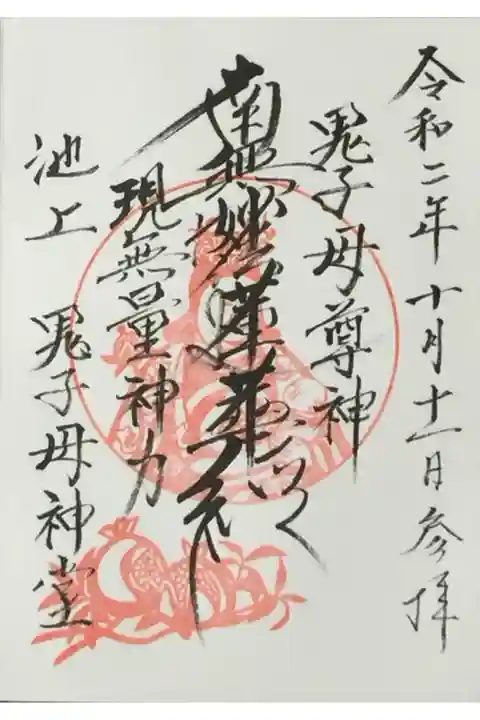 令和二年十月十一日参拝
鬼子母尊神
南無妙法蓮華経
現無量神力
池上 鬼子母神堂